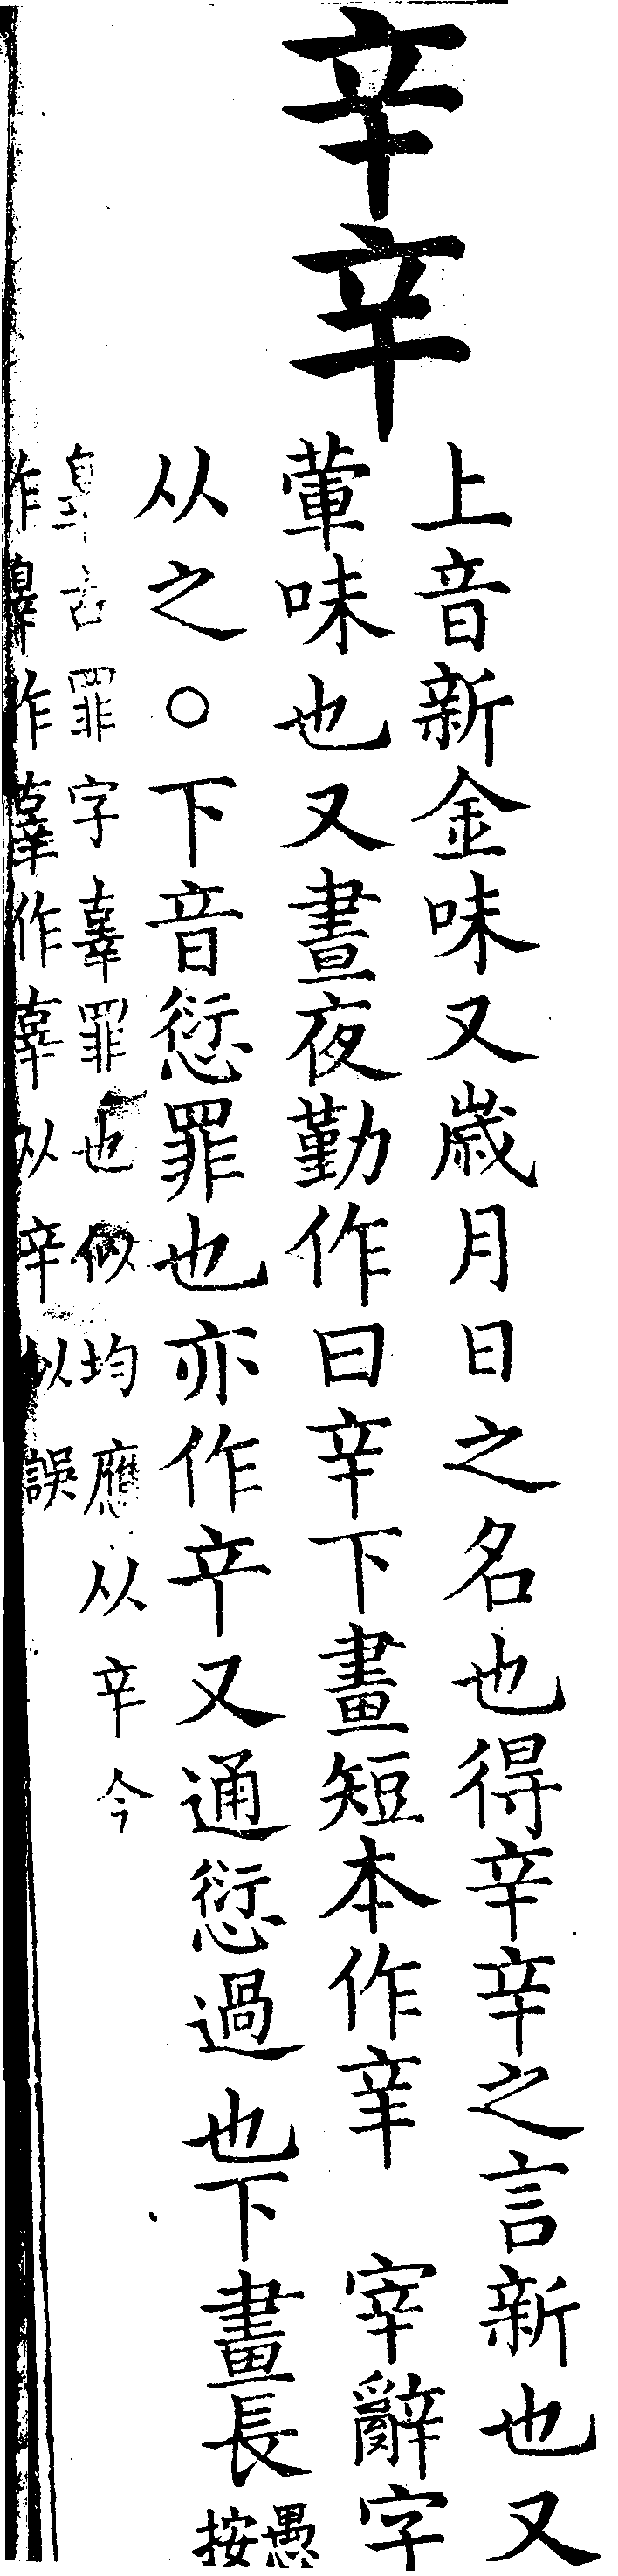 辛辛
上音新金味又歲月日之名也得辛辛之言新也又
葷味也又晝夜勤作曰辛下畫短本作𨐌 宰辭字
从之○下音愆罪也亦作䇂又通愆過也下畫長愚按
辠古罪字辜罪也似均應从辛今
作辠作作辜从辛似誤